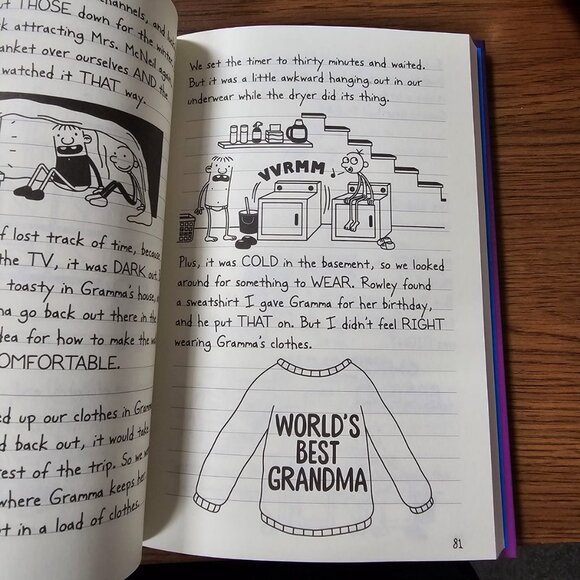 channels, and
THOSE down for the winter
attracting Mrs. McNeil again
over ourselves AND the
watched it THAT way.
lost track of time, because
the TV, it was DARK out.
toasty in Gramma's house,
go back out there in the
idea for how to make the
COMFORTABLE.
up our clothes in
back out, it would take
rest of the trip. So we
where Gramma keeps
in a load of clothes.
We set the timer to thirty minutes and waited.
But it was a little awkward hanging out in our
underwear while the dryer did its thing.
VVRMM
Plus, it was COLD in the basement, so we looked
around for something to WEAR. Rowley found
a sweatshirt I gave Gramma for her birthday,
and he put THAT on. But I didn't feel RIGHT
wearing Gramma's clothes.
WORLD'S
BEST
GRANDMA
81